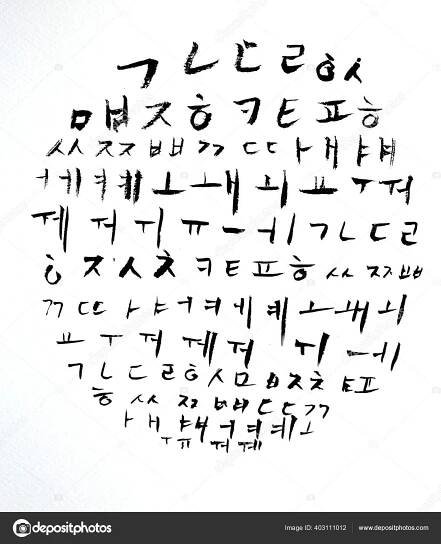 ㄱㄴㄷㄹㅎㅅ
ㅁㅂㅈㅎㅋㅌㅍㅎ
ㅆㅉㅃㄲㄸㅏㅐㅑㅒ
ㅓㅔㅕㅖㅗㅙㅚㅛㅜㅝ
ㅞㅝㅟㅠㅡㅢㄱㄴㄷㄹ
ㅎㅈㅅㅊㅋㅌㅍㅎㅆㅉㅃ
ㄲㄸㅏㅑㅓㅕㅔㅖㅗㅙㅚ
ㅛㅜㅝㅞㅝㅟㅢ
ㄱㄴㄷㄹㅎㅅㅁㅂㅈㅊㅌㅍ
ㅎㅆㅉㅃㄸㄷㄲ
ㅏㅐㅑㅒㅓㅕㅖㅗ
ㅠㅝㅞ
depositphotos
Image ID: 403111012 www.depositphotos.com